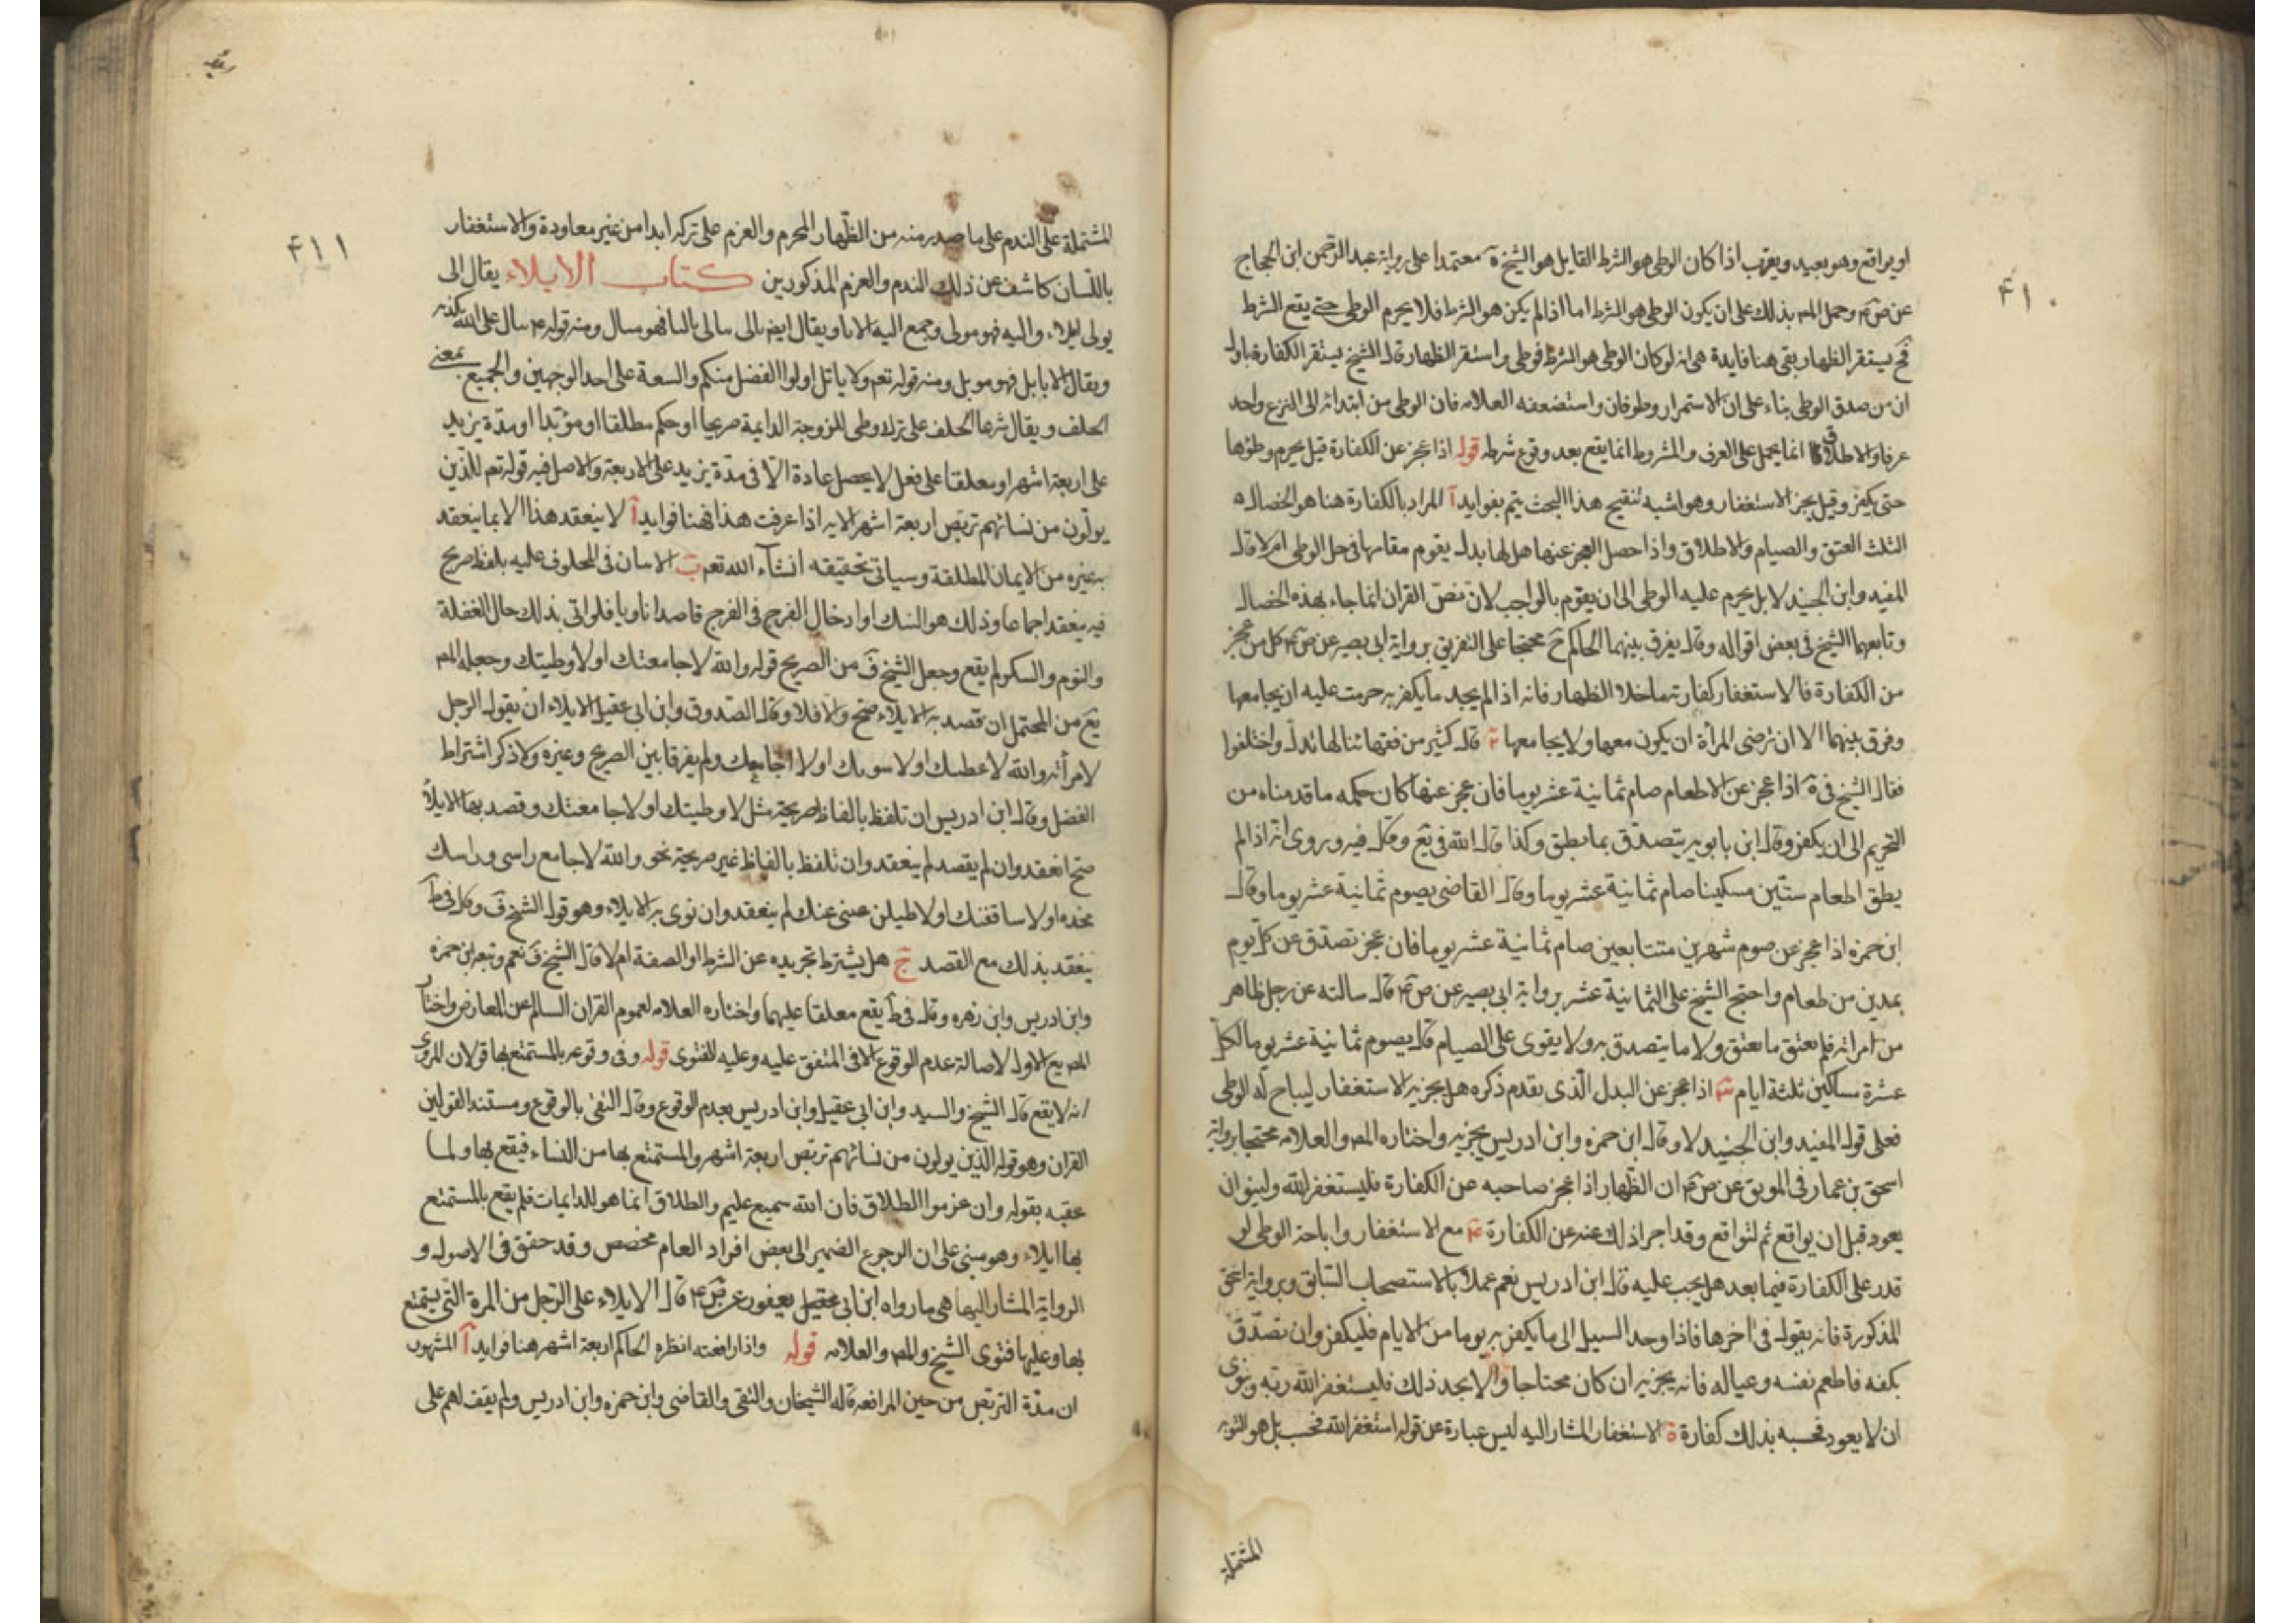 ٤١٠
او يواقع وهو بعيد ويقرب اذا كان الوطي هو الشرط القايل هو الشيخ ية معتمدا على رواية عبد الرحمن ابن الحجاج
عن ص ٤م وحمل المص بذلك على ان يكون الوطي هو الشرط اما اذا لم يكن هو الشرط فلا يحرم الوطي حتى يقع الشرط
فح يستقر الظهار بقي هنا فايدة هي انه لو كان الوطي هو الشرط فوطي واستقر الظهار قال الشيخ يستقر الكفارة باول
ان من صدق الوطي بناء على ان الاستمرار وطؤفان واستضعفه العلامه فان الوطي من ابتدائه الى النزع واحد
عرفا والاطلاق انما يحمل على العرف والمشروط انما يقع بعد وقوع شرطه قوله اذا عجز عن الكفارة قيل يحرم وطؤها
حتى يكفر وقيل يجز الاستغفار وهو اشبه تنقيح هذا البحث يتم بفوايد آ المراد بالكفارة هنا هو الخصال
الثلث العتق والصيام والاطلاق واذا حصل العجز عنها هل لها بدل يقوم مقامها في حل الوطي ام لا قال
المفيد وابن الجنيد لا بل يحرم عليه الوطي الى ان يقوم بالواجب لان نص القران انما جاء بهذه الخصال
وتابعهما الشيخ في بعض اقواله وقال يفرق بينهما الحاكم ح محتجا على التفريق برواية ابي بصير عن ص ٤م كل من عجز
من الكفارة فالاستغفار كفارته ما خلا الظهار فانه اذا لم يجد ما يكفر به حرمت عليه ان يجامعها
وفرق بينهما الا ان ترضى المراة ان يكون معها ولا يجامعها ٢ قال كثير من فقهائنا لها بدل واختلفوا
فقال الشيخ في ية اذا عجز عن الاطعام صام ثمانية عشر يوما فان عجز عنها كان حكمه ما قدمناه من
التحريم الى ان يكفر وقال ابن بابويه يتصدق بما يطيق وكذا قال الله في يع وقال فيه وروى انه اذا لم
يطق اطعام ستين مسكينا صام ثمانية عشر يوما وقال القاضي يصوم ثمانية عشر يوما وقال
ابن حمزه اذا عجز عن صوم شهرين متتابعين صام ثمانية عشر يوما فان عجز تصدق عن كل يوم
بمدين من طعام واحتج الشيخ على الثمانية عشر برواية ابي بصير عن ص ٤م قال سالته عن رجل ظاهر
من امراته فلم يعتق ما يعتق ولا ما يتصدق به ولا يقوى على الصيام قال يصوم ثمانية عشر يوما لكل
عشرة مساكين ثلثة ايام ٣ اذا عجز عن البدل الذي تقدم ذكره هل يجزيه الاستغفار ليباح له الوطي
فعلى قول المفيد وابن الجنيد لا وقال ابن حمزه وابن ادريس يجزيه واختاره المص والعلامه محتجا برواية
اسحق بن عمار في الموثق عن ص ٤م ان الظهار اذا عجز صاحبه عن الكفارة فليستغفر الله ولينو ان
يعود قبل ان يواقع ثم ليواقع وقد اجرا ذلك عنه عن الكفارة ٤ مع الاستغفار واباحة الوطي لو
قدر على الكفارة فيما بعد هل يجب عليه قال ابن ادريس نعم عملا بالاستصحاب السابق وبرواية اسحق
المذكورة فانه يقول في اخرها فاذا وجد السبيل الى ما يكفر به يوما من الايام فليكفر وان تصدق
بكفه فاطعم نفسه وعياله فانه يجزيه ان كان محتاجا والا يجد ذلك فليستغفر الله ربه وينوي
ان لا يعود فحسبه بذلك كفارة ة الاستغفار المشار اليه ليس عبارة عن قوله استغفر الله فحسب بل هو التوبه
المشتملة
٤١١
المشتملة على الندم على ما صدر منه من الظهار المحرم والعزم على تركه ابدا من غير معاودة والاستغفار
باللسان كاشف عن ذلك الندم والعزم المذكورين كتاب الايلاء يقال الى
يولى ايلاء والية فهو مولى وجمع الية الايا ويقال ايض تالى يتالى تاليا فهو متال ومنه قوله ٤م من يتال على الله يكذبه
ويقال الايا بل فهو موبل ومنه قوله تعم ولا ياتل اولوا الفضل منكم والسعة على احد الوجهين والجميع بمعنى
الحلف ويقال شرعا الحلف على ترك وطي الزوجة الدايمة صريحا او حكم مطلقا او مؤبدا او مدة يزيد
على اربعة اشهر او معلقا على فعل لا يحصل عادة الا في مدة يزيد على الاربعة والاصل فيه قوله تعم للذين
يولون من نسائهم تربص اربعة اشهر الايه اذا عرفت هذا فهنا فوايد آ لا ينعقد هذا الا بما ينعقد
به غيره من الايمان المطلقة وسياتي تحقيقه انشآء الله تعم ب الاتيان في المحلوف عليه بلفظ صريح
فيه ينعقد اجماعا وذلك هو النيك او ادخال الفرج في الفرج قاصدا ناويا فلو اتى بذلك حال الغفلة
والنوم والسكر لم يقع وجعل الشيخ ف من الصريح قوله والله لا جامعتك او لا وطيتك وجعله المص
يع من المحتمل ان قصد به الايلاء صح والا فلا وقال الصدوق وابن ابي عقيل الايلاء ان يقول الرجل
لامراته والله لاغيظنك او لاسونك او لا اجامعك ولم يفرقا بين الصريح وغيره ولا ذكر اشتراط
الفضل وقال ابن ادريس ان تلفظ بالفاظ صريحة مثل لا وطيتك او لا جامعتك وقصد بها الايلاء
صح انعقد وان لم يقصد لم ينعقد وان تلفظ بالفاظ غير صريحة نحو والله لا جامع راسي وراسك
مخده او لا ساقفتك او لاطيلن عني عنك لم ينعقد وان نوى به الايلاء وهو قول الشيخ ف وقال في ط
ينعقد بذلك مع القصد ج هل يشترط تجريده عن الشرط او الصفة ام لا قال الشيخ ف نعم وتبعه ابن حمزه
وابن ادريس وابن زهره وقال في ط يقع معلقا عليهما واختاره العلامه لعموم القران السالم عن المعارض واختار
المص يع الاول لاصالة عدم الوقوع الا في المتفق عليه وعليه الفتوى قوله وفي وقوعه بالمستمتع بها قولان المروي
انه لا يقع قال الشيخ والسيد وابن ابي عقيل وابن ادريس بعدم الوقوع وقال التقي بالوقوع ومستند القولين
القران وهو قوله الذين يولون من نسائهم تربص اربعة اشهر والمستمتع بها من النساء فيقع بها ولما
عقبه بقوله وان عزموا الطلاق فان الله سميع عليم والطلاق انما هو للدايمات فلم يقع بالمستمتع
بها ايلاء وهو مبني على ان الرجوع الضمير الى بعض افراد العام مخصص وقد حقق في الاصول و
الرواية المشار اليها هي ما رواه ابن ابي يعفور عن ص ٤م قال لا ايلاء على الرجل من المرة التي يتمتع
بها وعليها فتوى الشيخ والمص والعلامه قوله واذا رافعته انظره الحاكم اربعة اشهر هنا فوايد آ المشهور
ان مدة التربص من حين المرافعه قاله الشيخان والتقي والقاضي وابن حمزه وابن ادريس ولم يقف لهم على